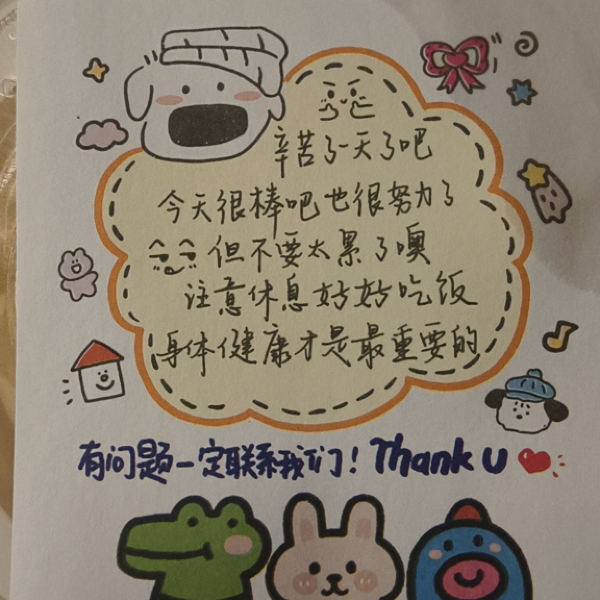 辛苦了一天了吧
今天很棒吧也很努力了
但不要太累了噢
注意休息好好吃饭
身体健康才是最重要的
有问题一定联系我们！Thank U